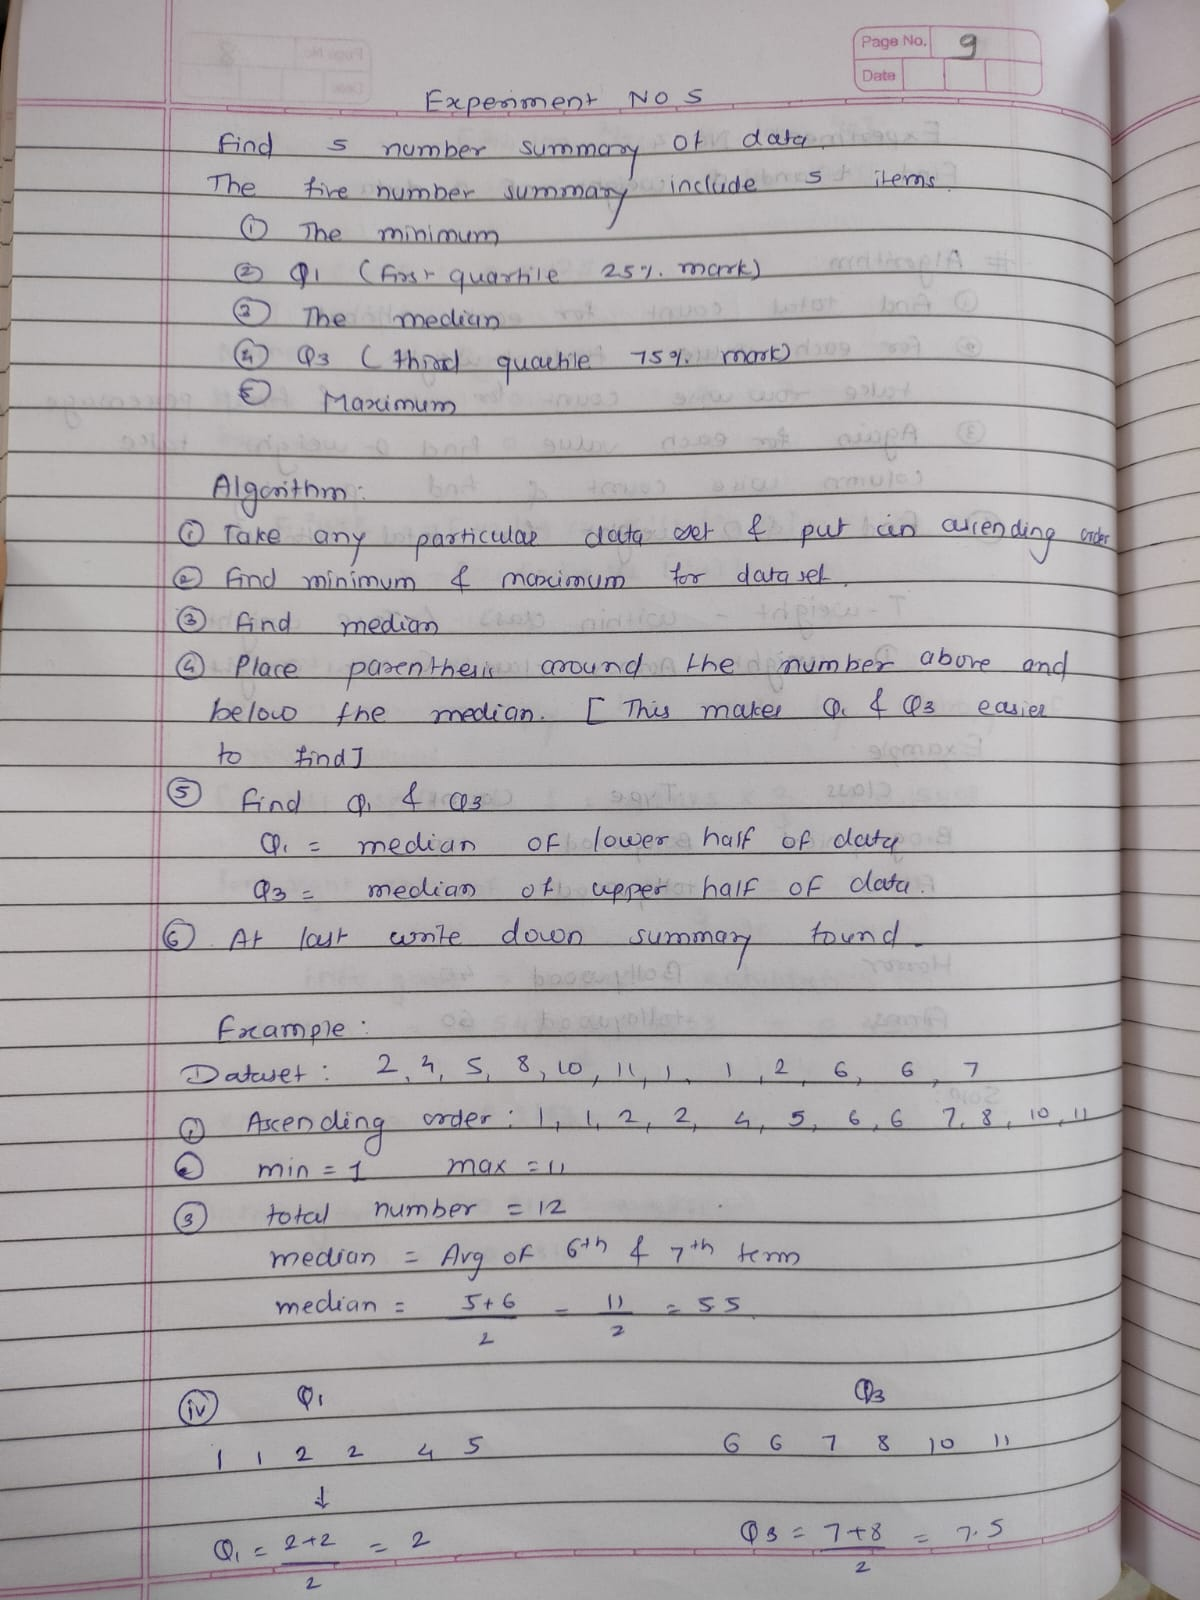 Page No. 9
Date
Experiment No 5
Find 5 number summary of data.
The five number summary include 5 items.
① The minimum
② Q1 (first quartile 25% mark)
③ The median
④ Q3 (third quartile 75% mark)
⑤ Maximum
Algorithm:
① Take any particular data set & put in ascending order
② Find minimum & maximum for data set.
③ Find median
④ Place parenthesis around the number above and
below the median. [This makes Q1 & Q3 easier
to find]
⑤ Find Q1 & Q3
Q1 = median of lower half of data
Q3 = median of upper half of data.
⑥ At last write down summary found.
Example:
Dataset: 2, 4, 5, 8, 10, 11, 1, 1, 2, 6, 6, 7
① Ascending order: 1, 1, 2, 2, 4, 5, 6, 6 7, 8, 10, 11
② min = 1 max = 11
③ total number = 12
median = Avg of 6th & 7th term
median = 5+6/2 = 11/2 = 5.5
iv Q1 Q3
1 1 2 2 4 5 6 6 7 8 10 11
↓
Q1 = 2+2/2 = 2 Q3 = 7+8/2 = 7.5